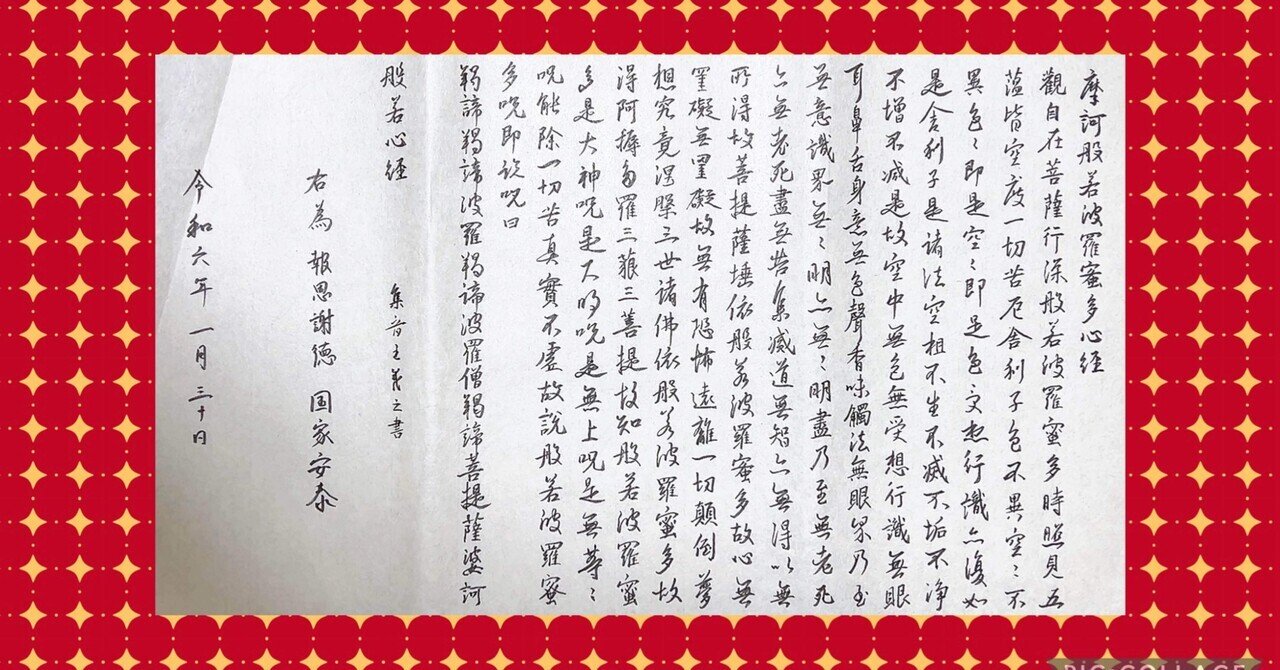 摩訶般若波羅蜜多心経
觀自在菩薩行深般若波羅蜜多時照見五
蕴皆空度一切苦厄舎利子色不異空〻不
異色〻即是空〻即是色受想行識亦復如
是舎利子是諸法空相不生不滅不垢不浄
不增不减是故空中無色無受想行識無眼
耳鼻舌身意無色聲香味觸法無眼界乃至
無意識界無〻明亦無〻明盡乃至無老死
亦無老死盡無苦集滅道無智亦無得以無
所得故菩提薩埵依般若波羅蜜多故心無
罣礙無罣礙故無有恐怖遠離一切顛倒夢
想究竟涅槃三世諸佛依般若波羅蜜多故
得阿耨多羅三藐三菩提故知般若波羅蜜
多是大神呪是大明呪是無上呪是無等〻
呪能除一切苦真實不虚故説般若波羅蜜
多呪即説呪曰
羯諦羯諦波羅羯諦波羅僧羯諦菩提薩婆訶
般若心経
集音王羲之書
右為 報恩謝徳 国家安泰
令和六年 一月三十日
PIC COLLAGE